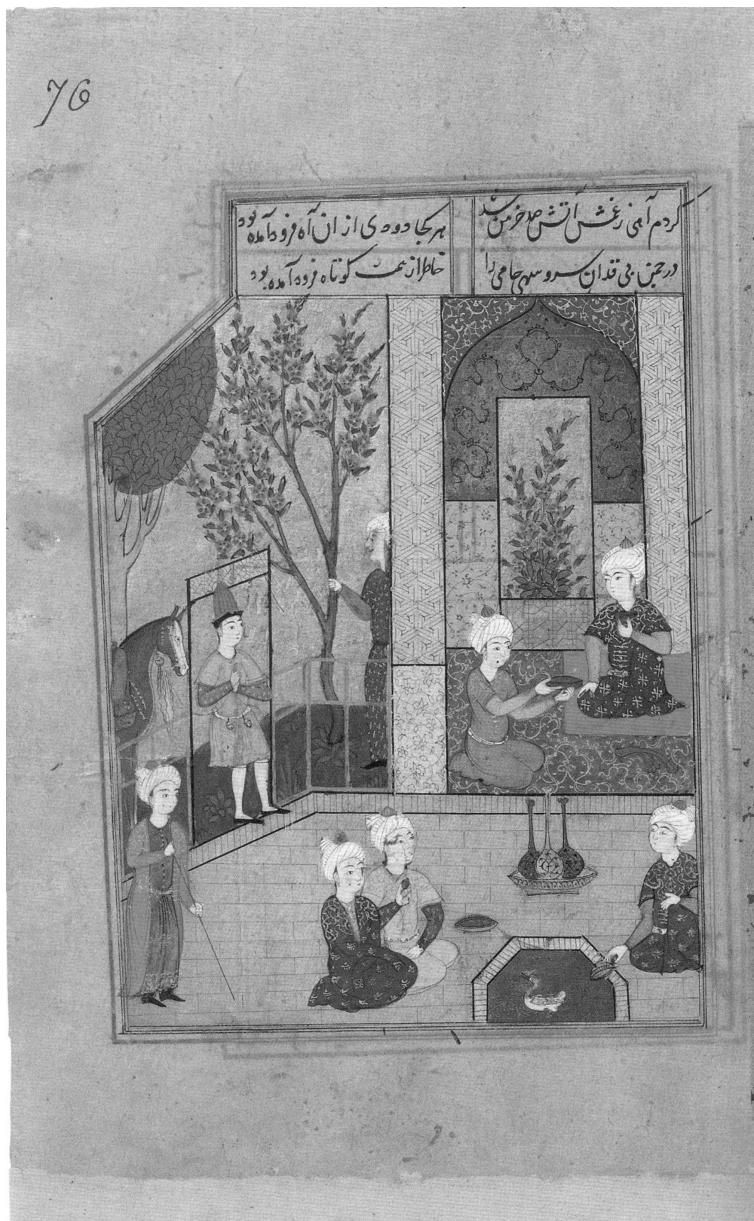 76
کردم آهی ز غمش آتش صد خرمن شد
هر کجا دودی از آن آه فرود آمده بود
در چمن بی قدان سرو سهی جامی را
خاطر از همت کوتاه فرود آمده بود